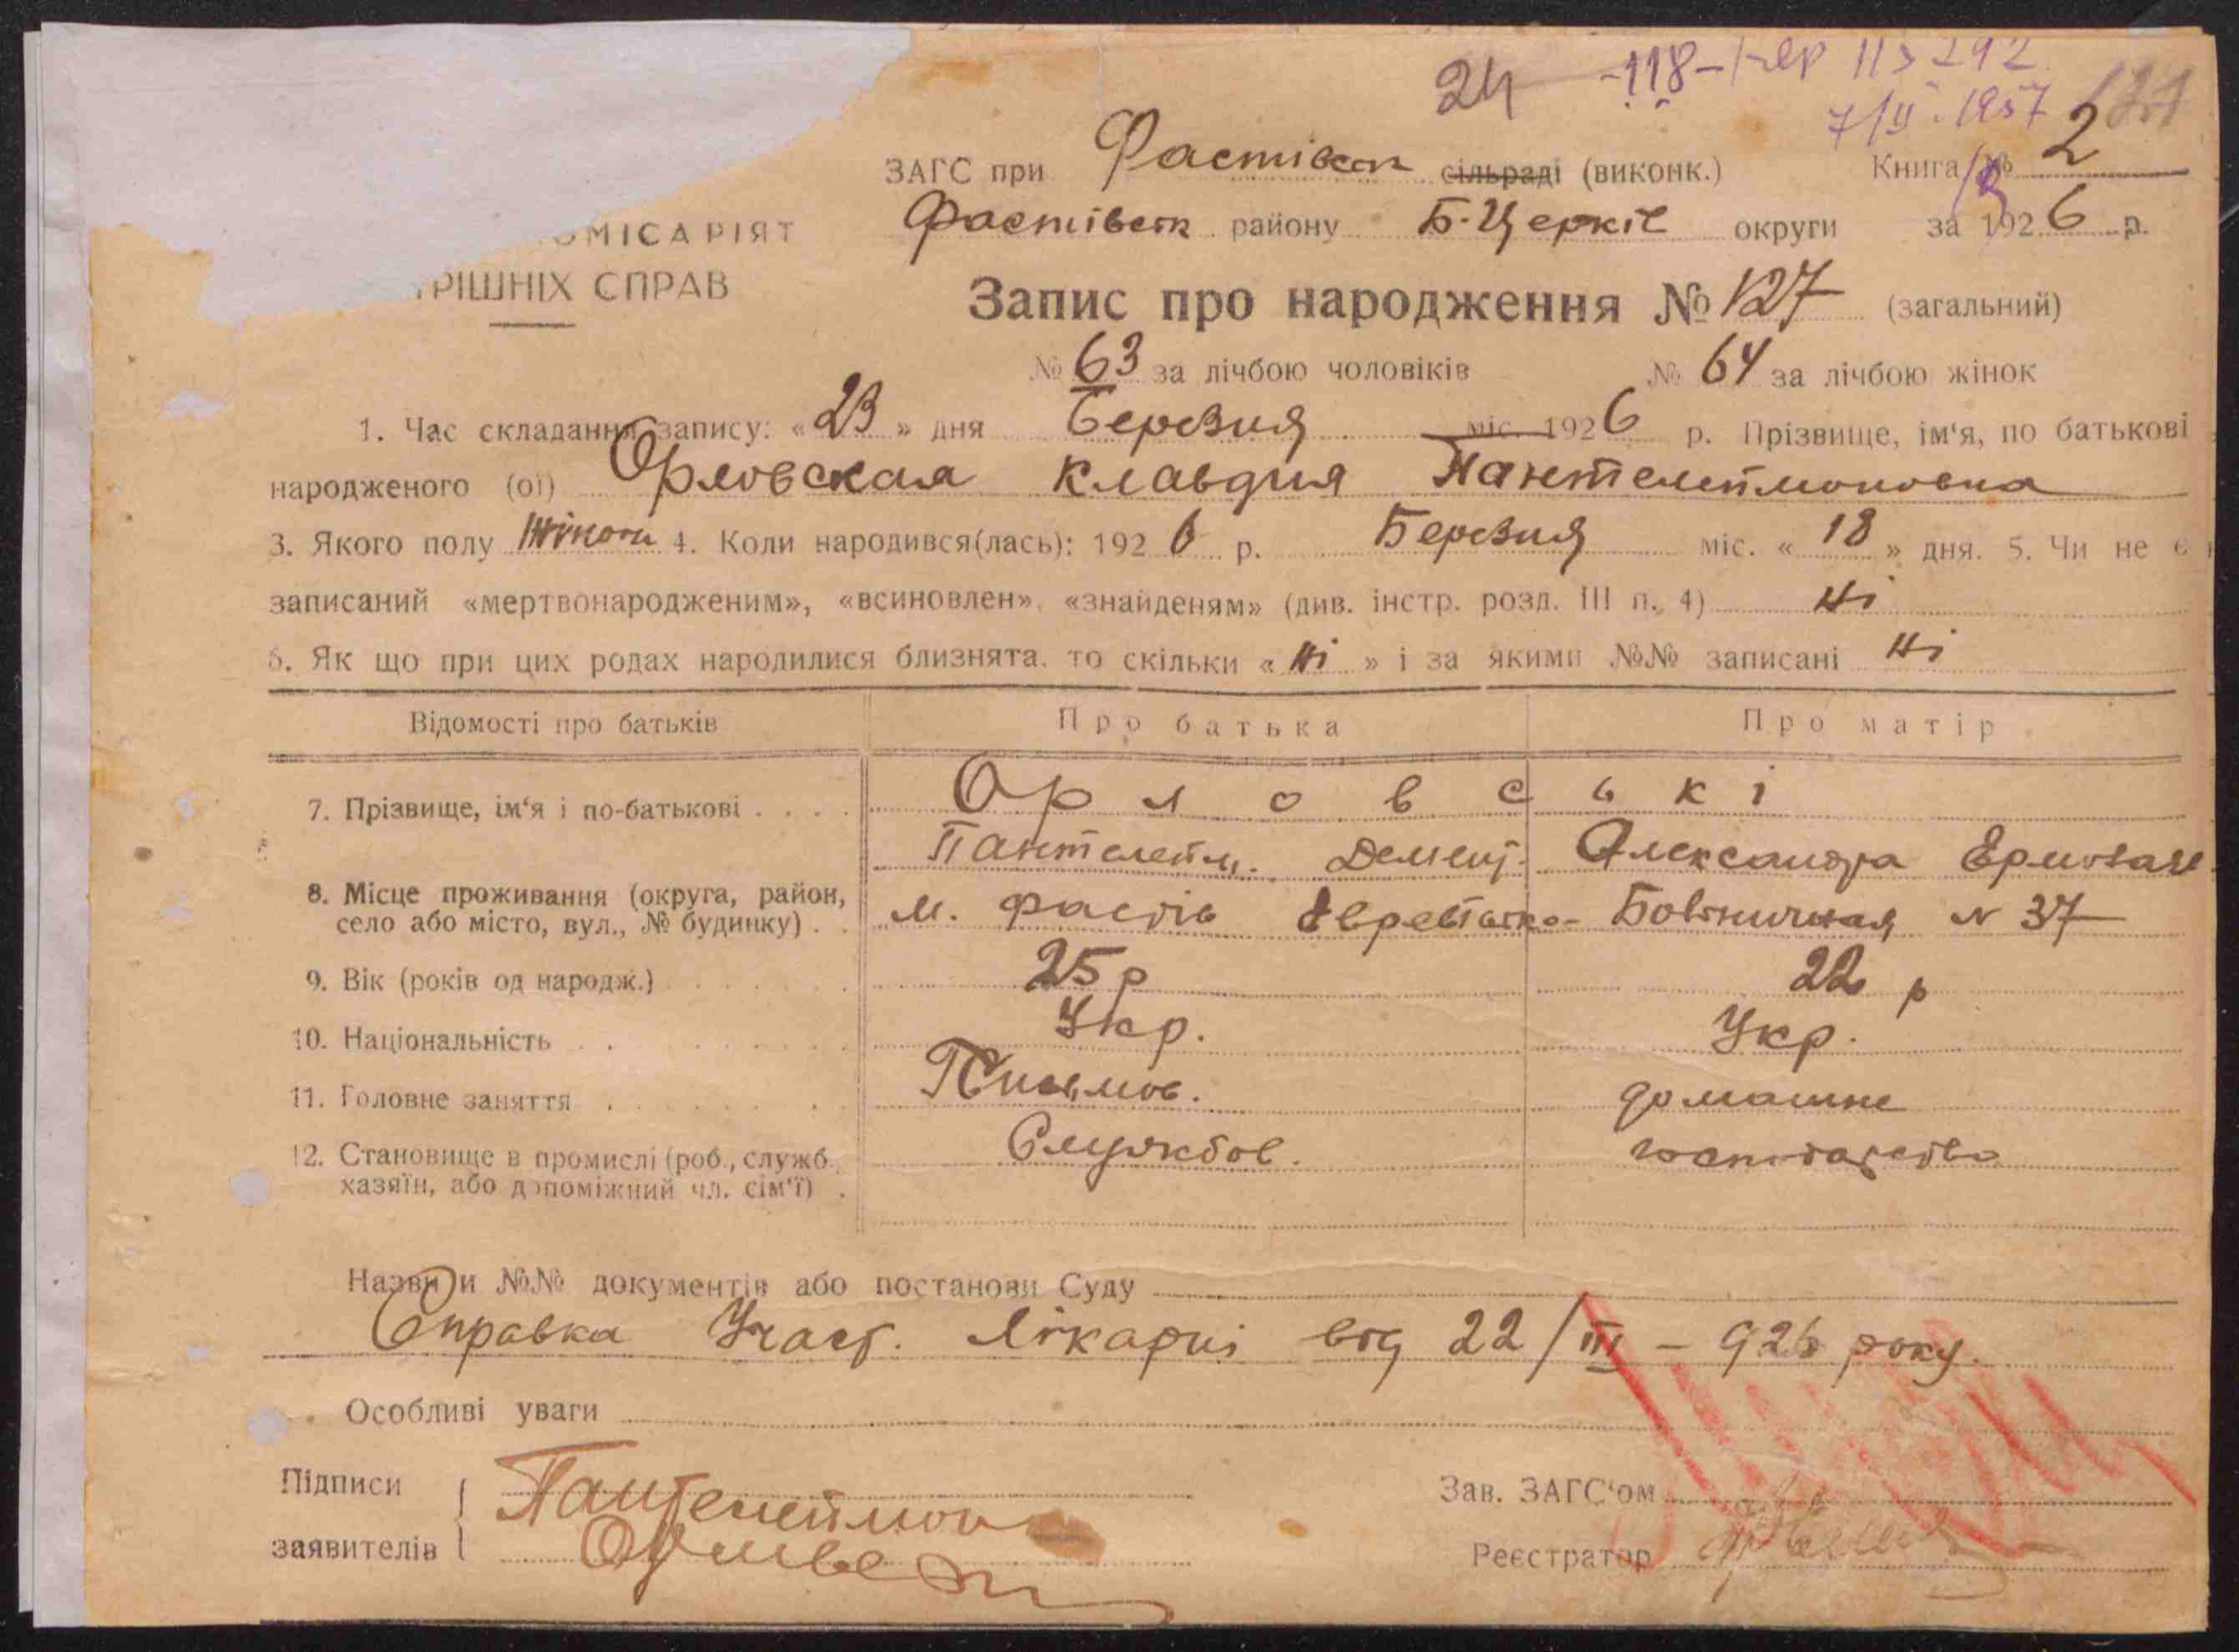 24 -118-
7/II. 1957
ЗАГС при Фастівськ сільраді (виконк.) Книга № 2
ОМІСАРІЯТ Фастівськ району Б-Церків округи за 1926 р.
РІШНІХ СПРАВ
Запис про народження № 127 (загальний)
№ 63 за лічбою чоловіків № 64 за лічбою жінок
1. Час складання запису: «23» дня Березня міс. 1926 р. Прізвище, ім'я, по батькові
народженого (ої) Орловская Клавдия Пантелеймоновна
3. Якого полу Жіночи 4. Коли народився(лась): 1926 р. Березня міс. «18» дня. 5. Чи не є
записаний «мертвонародженим», «всиновлен», «знайденям» (див. інстр. розд. III п. 4) Ні
6. Як що при цих родах народилися близнята, то скільки «Ні» і за якими №№ записані Ні
Відомості про батьків Про батька Про матір
7. Прізвище, ім'я і по-батькові Орловські
Пантелейм. Демент. Александра
8. Місце проживання (округа, район, село або місто, вул., № будинку) м. Фастів N 37
9. Вік (років од народж.) 25 р 22 р
10. Національність Укр. Укр.
11. Головне заняття Письмов. домашне
12. Становище в промислі (роб., служб. хазяїн, або допоміжний чл. сім'ї) Службов. господарство
Назви и №№ документів або постанови Суду
Справка Участ. Лікарні від 22/III – 926 року.
Особливі уваги
Підписи Пантелеймон Зав. ЗАГС'ом
заявителів Реєстратор